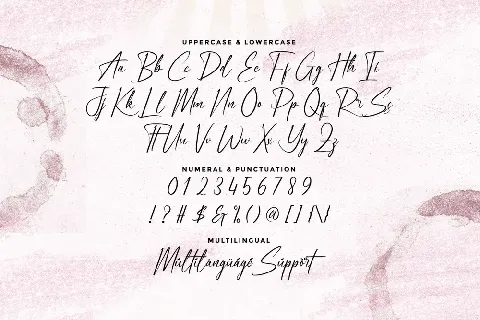 UPPERCASE & LOWERCASE
Aa Bb Cc Dd Ee Ff Gg Hh Ii
Jj Kk Ll Mm Nn Oo Pp Qq Rr Ss
Tt Uu Vv Ww Xx Yy Zz
NUMERAL & PUNCTUATION
0 1 2 3 4 5 6 7 8 9
! ? # $ & % ( ) @ [ ] { \ }
MULTILINGUAL
Múltilangüãgé Sùppört